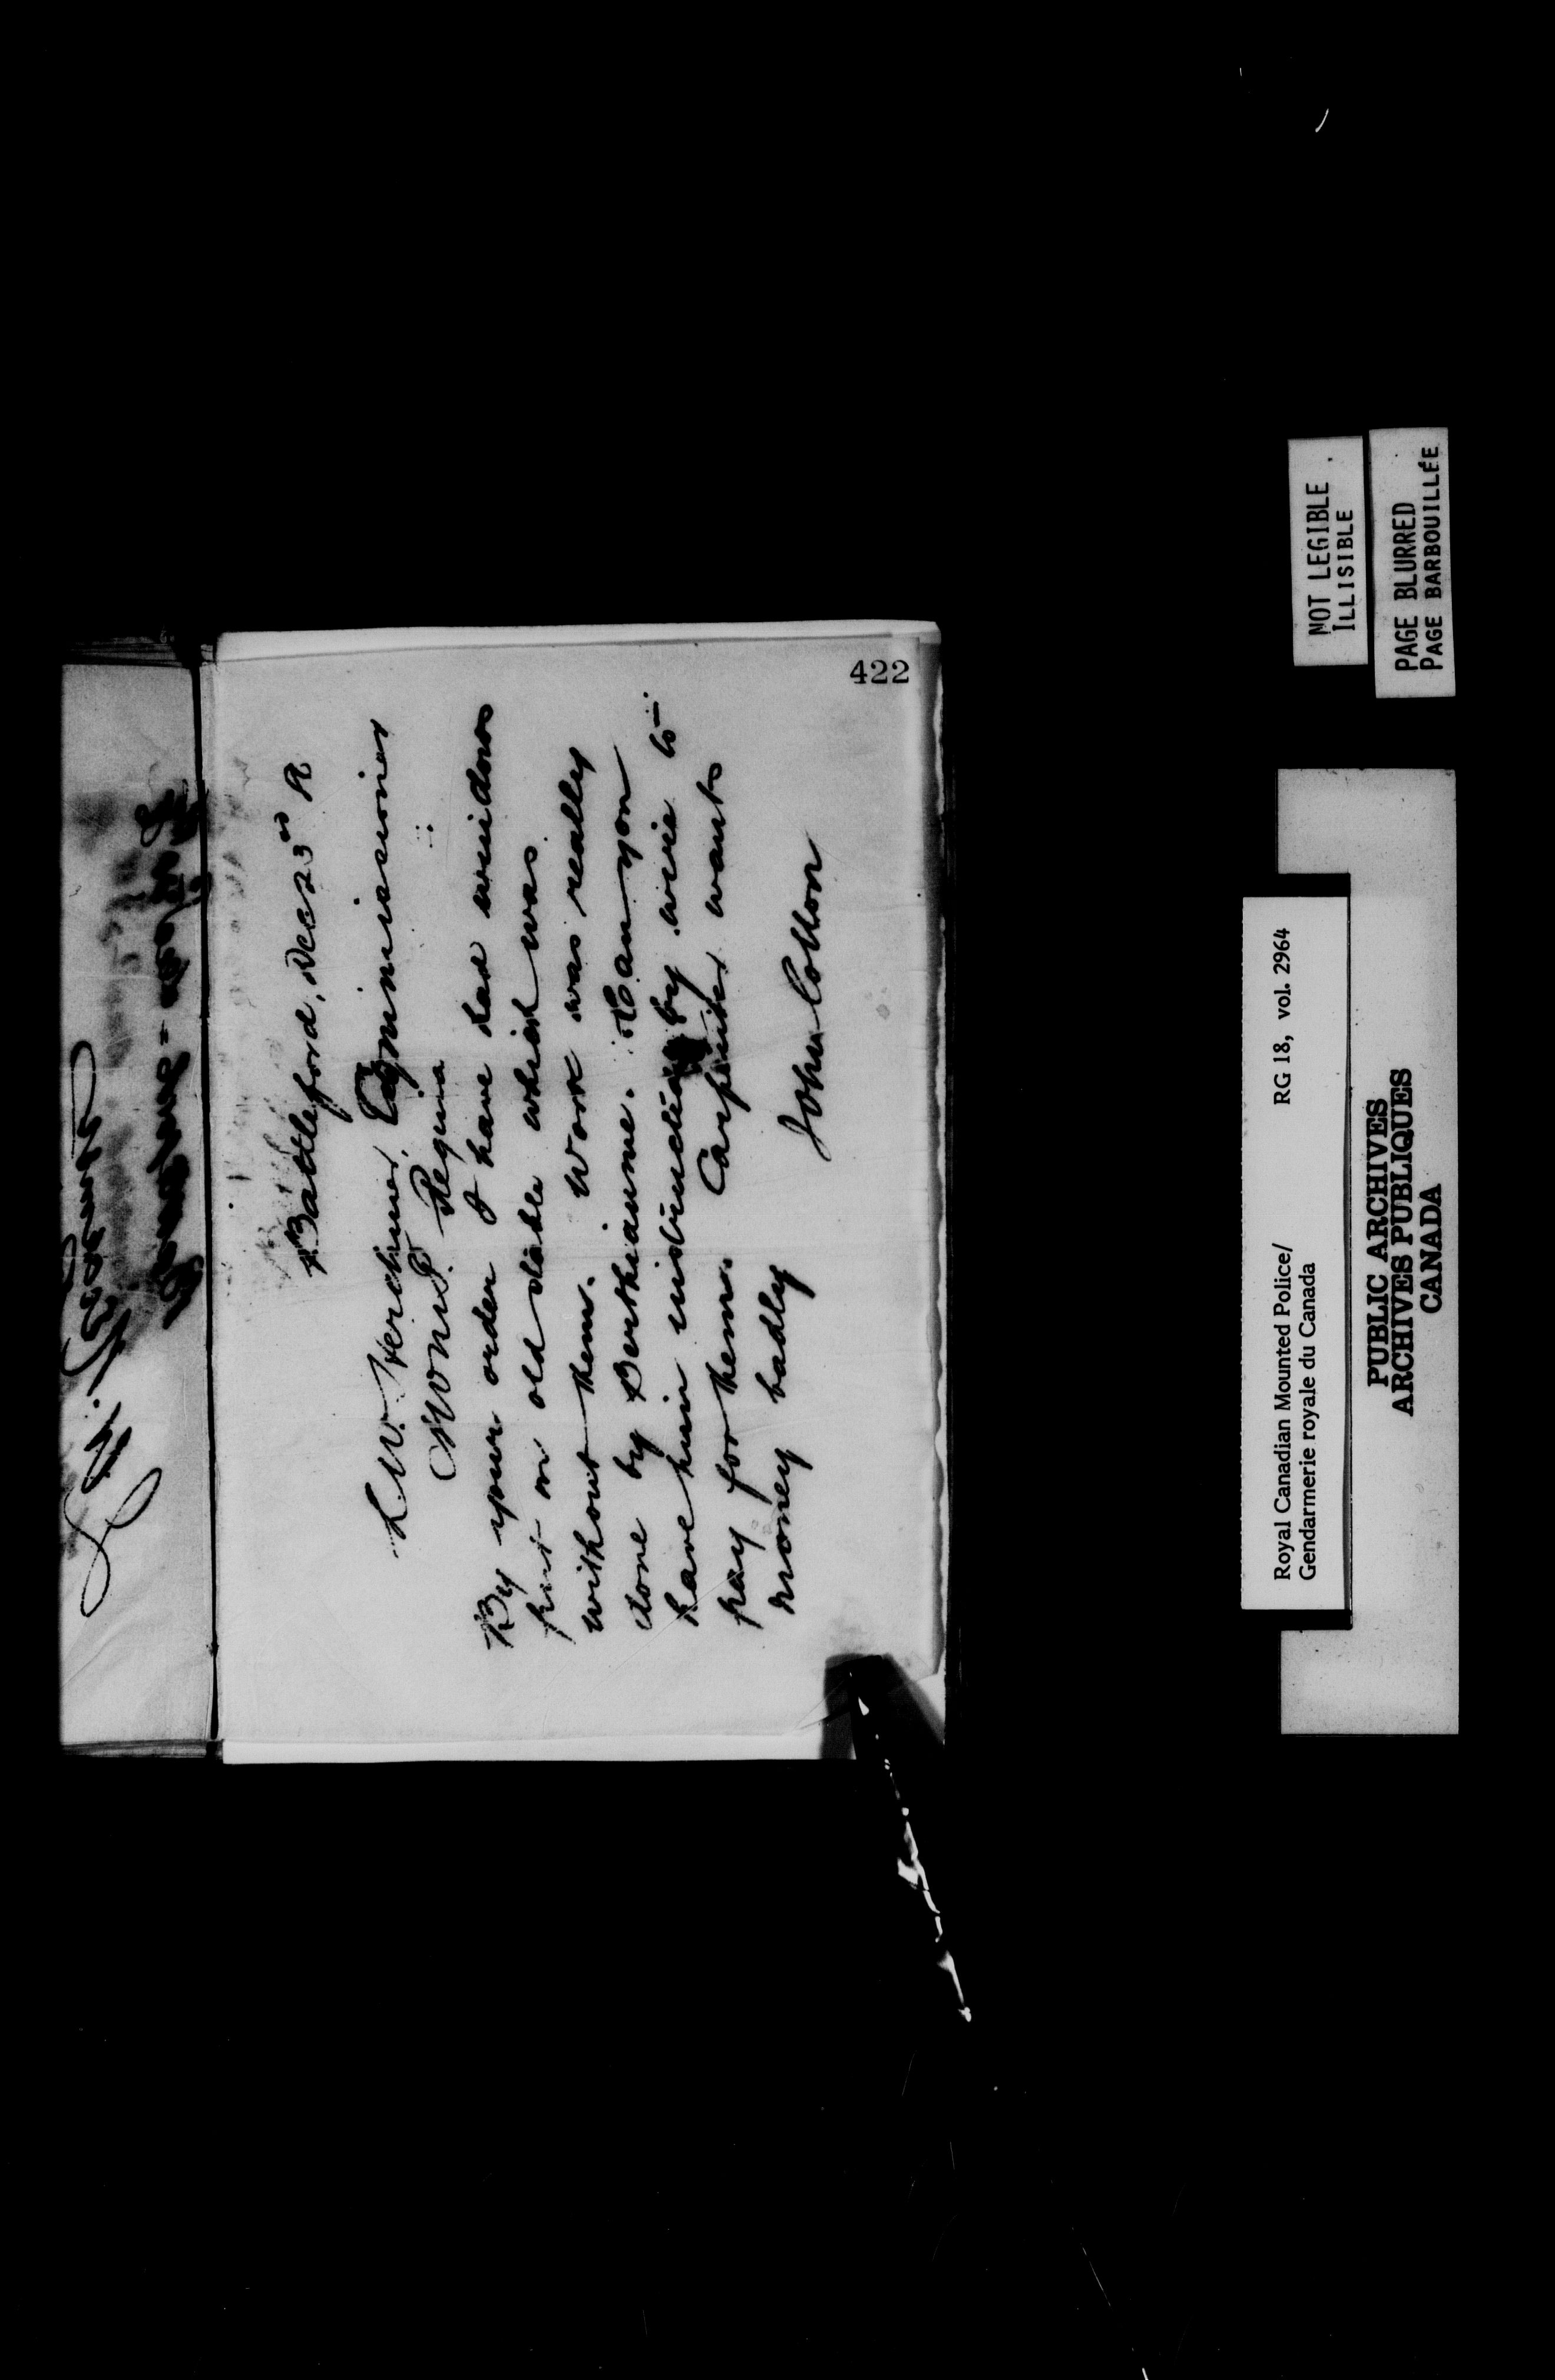 422
Battleford, Dec 23rd R
L W. Herchmer, Commissioner
N W M P. Regina
By your order I have had windows
put in old stable which was
without them. Work was really
done by Bertheaume. Can you
have him instructed by wire to
pay for them. Carpenter wants
money badly
John Cotton
NOT LEGIBLE
ILLISIBLE
PAGE BLURRED
PAGE BARBOUILLÉE
Royal Canadian Mounted Police/ RG 18, vol. 2964
Gendarmerie royale du Canada
PUBLIC ARCHIVES
ARCHIVES PUBLIQUES
CANADA